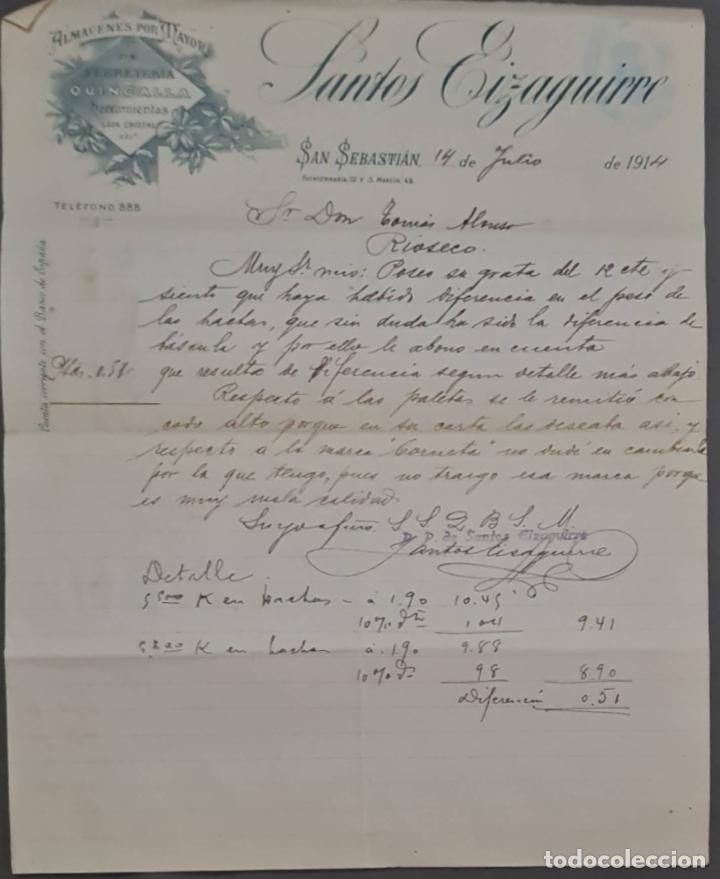 ALMACENES POR MAYOR
DE
FERRETERÍA
QUINCALLA
Herramientas
LOZA, CRISTAL
Santos Eizaguirre
SAN SEBASTIÁN, 14 de Julio de 1914
FUENTERRABÍA, 12 Y S. MARTÍN, 43.
TELÉFONO 888
Sr Don Tomás Alonso
Rioseco.
Cuenta corriente con el Banco de España
Muy Sr mio: Poseo su grata del 12 cte y
siento que haya habido diferencia en el peso de
las hachas, que sin duda ha sido la diferencia de
báscula y por ello le abono en cuenta
Ptas. 0.51
que resulta de diferencia segun detalle más abajo.
Respecto á las paletas se le remitió con
codo alto porque en su carta las deseaba asi, y
respecto a la marca "Corneta" no dudé en cambiarla
por la que tengo, pues no traigo esa marca porque
es muy mala calidad.
Suyo afmo. S. S. Q. B. S. M.
P. P. de Santos Eizaguirre
Santos Eizaguirre
Detalle.
5500 K en hachas - á 1.90 10.45
10% dto 1 04 9.41
5200 K en hachas á 1.90 9.88
10% d 98 8.90
Diferencia 0.51
todocoleccion